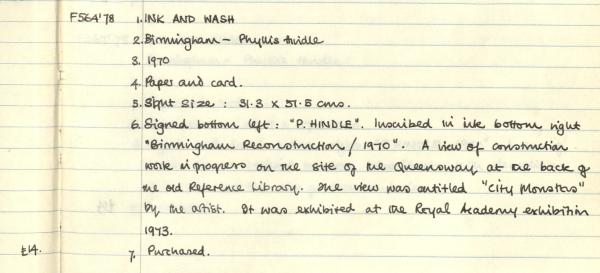 F564'78 1. INK AND WASH
2. Birmingham - Phyllis Hindle
3. 1970
4. Paper and card.
5. Sight size : 31.3 x 51.5 cms.
6. Signed bottom left : "P. HINDLE". Inscribed in ink bottom right
"Birmingham Reconstruction / 1970". A view of construction
work in progress on the site of the Queensway at the back of
the old Reference Library. The view was entitled "City Monsters"
by the artist. It was exhibited at the Royal Academy exhibition
1973.
£14. 7. Purchased.